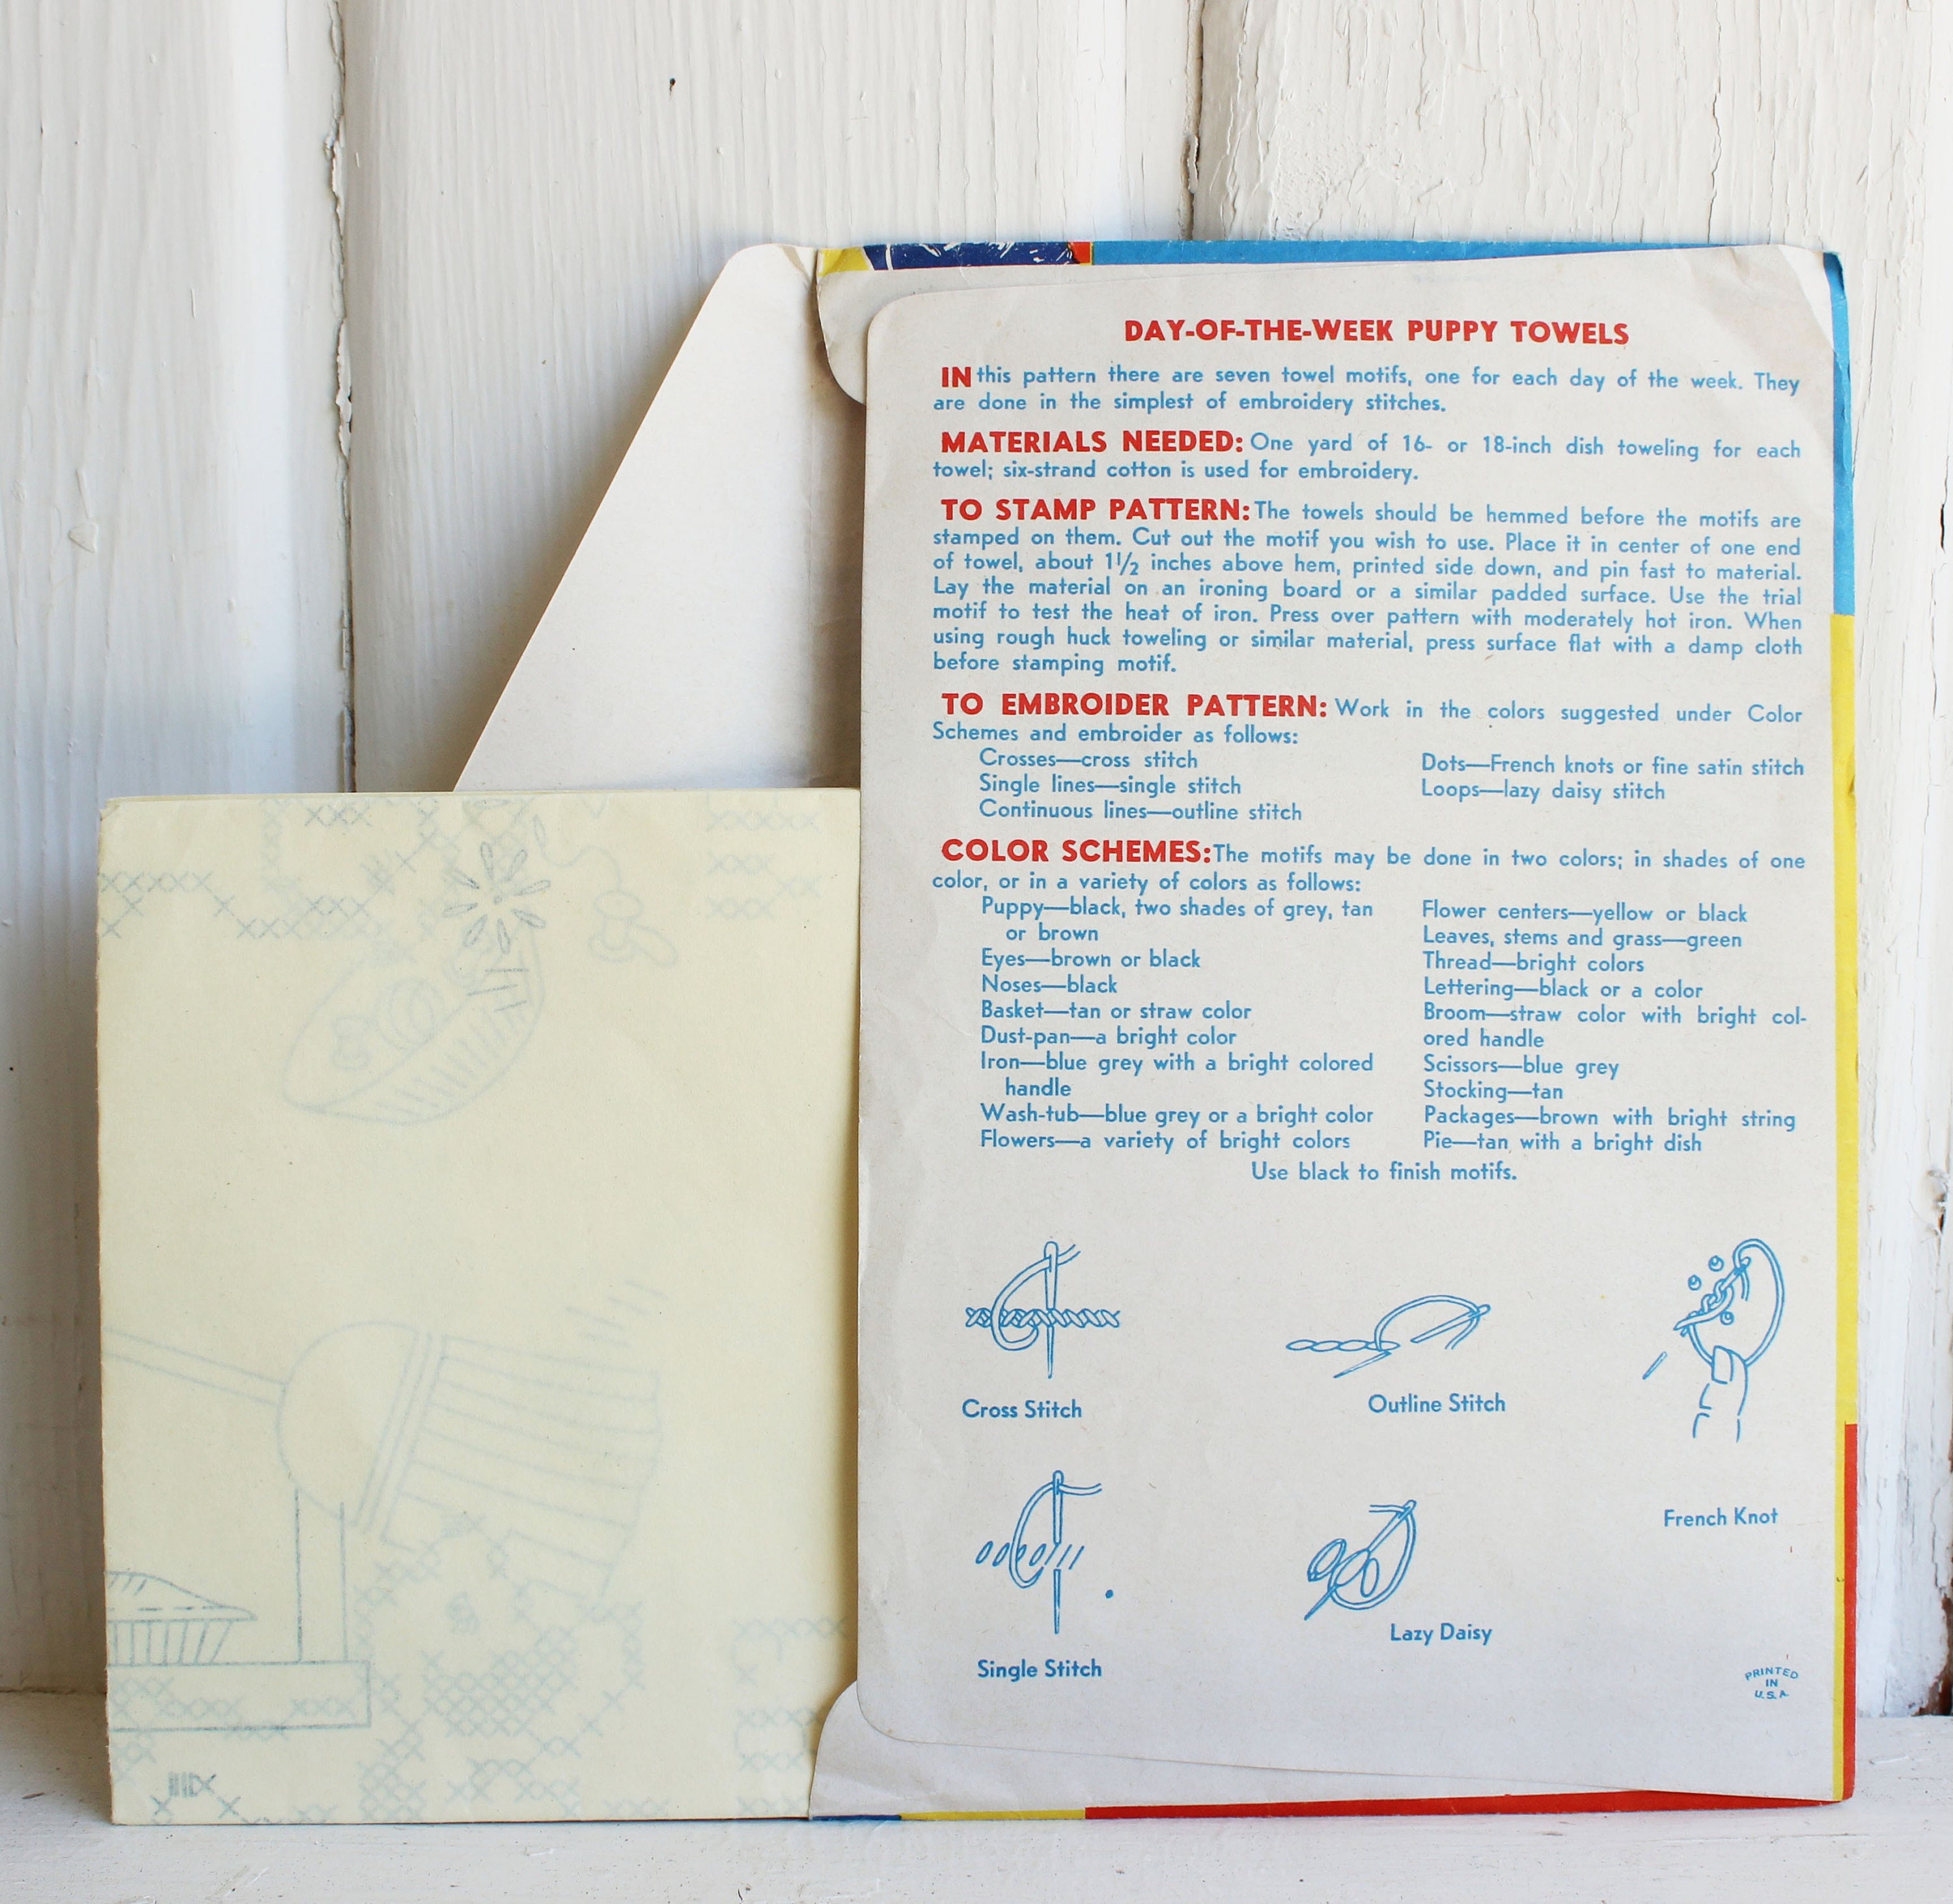 DAY-OF-THE-WEEK PUPPY TOWELS
IN this pattern there are seven towel motifs, one for each day of the week. They
are done in the simplest of embroidery stitches.
MATERIALS NEEDED: One yard of 16- or 18-inch dish toweling for each
towel; six-strand cotton is used for embroidery.
TO STAMP PATTERN: The towels should be hemmed before the motifs are
stamped on them. Cut out the motif you wish to use. Place it in center of one end
of towel, about 1½ inches above hem, printed side down, and pin fast to material.
Lay the material on an ironing board or a similar padded surface. Use the trial
motif to test the heat of iron. Press over pattern with moderately hot iron. When
using rough huck toweling or similar material, press surface flat with a damp cloth
before stamping motif.
TO EMBROIDER PATTERN: Work in the colors suggested under Color
Schemes and embroider as follows:
Crosses—cross stitch
Single lines—single stitch
Continuous lines—outline stitch
Dots—French knots or fine satin stitch
Loops—lazy daisy stitch
COLOR SCHEMES: The motifs may be done in two colors; in shades of one
color, or in a variety of colors as follows:
Puppy—black, two shades of grey, tan
or brown
Eyes—brown or black
Noses—black
Basket—tan or straw color
Dust-pan—a bright color
Iron—blue grey with a bright colored
handle
Wash-tub—blue grey or a bright color
Flowers—a variety of bright colors
Flower centers—yellow or black
Leaves, stems and grass—green
Thread—bright colors
Lettering—black or a color
Broom—straw color with bright col-
ored handle
Scissors—blue grey
Stocking—tan
Packages—brown with bright string
Pie—tan with a bright dish
Use black to finish motifs.
Cross Stitch
Outline Stitch
French Knot
Single Stitch
Lazy Daisy
PRINTED
IN
U.S.A.